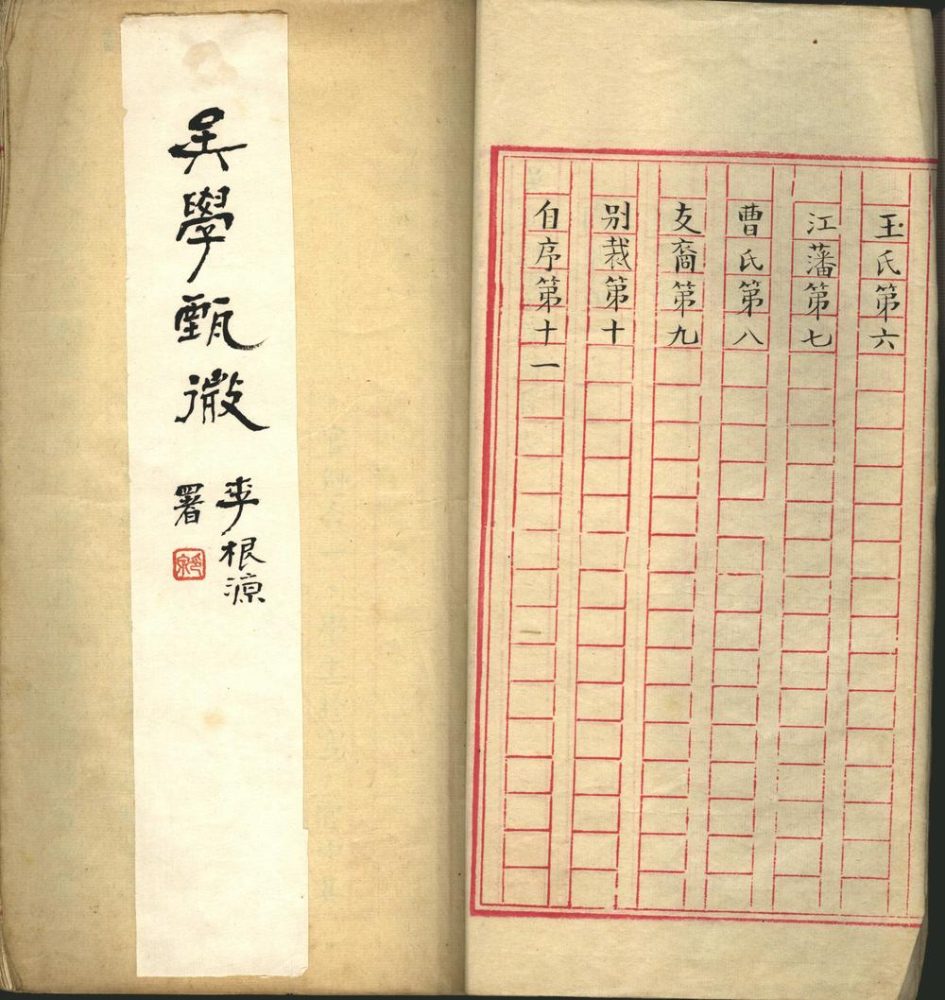 玉氏第六
江藩第七
曹氏第八
支裔第九
别裁第十
自序第十一
吴學甄微
李根源
署
印泉